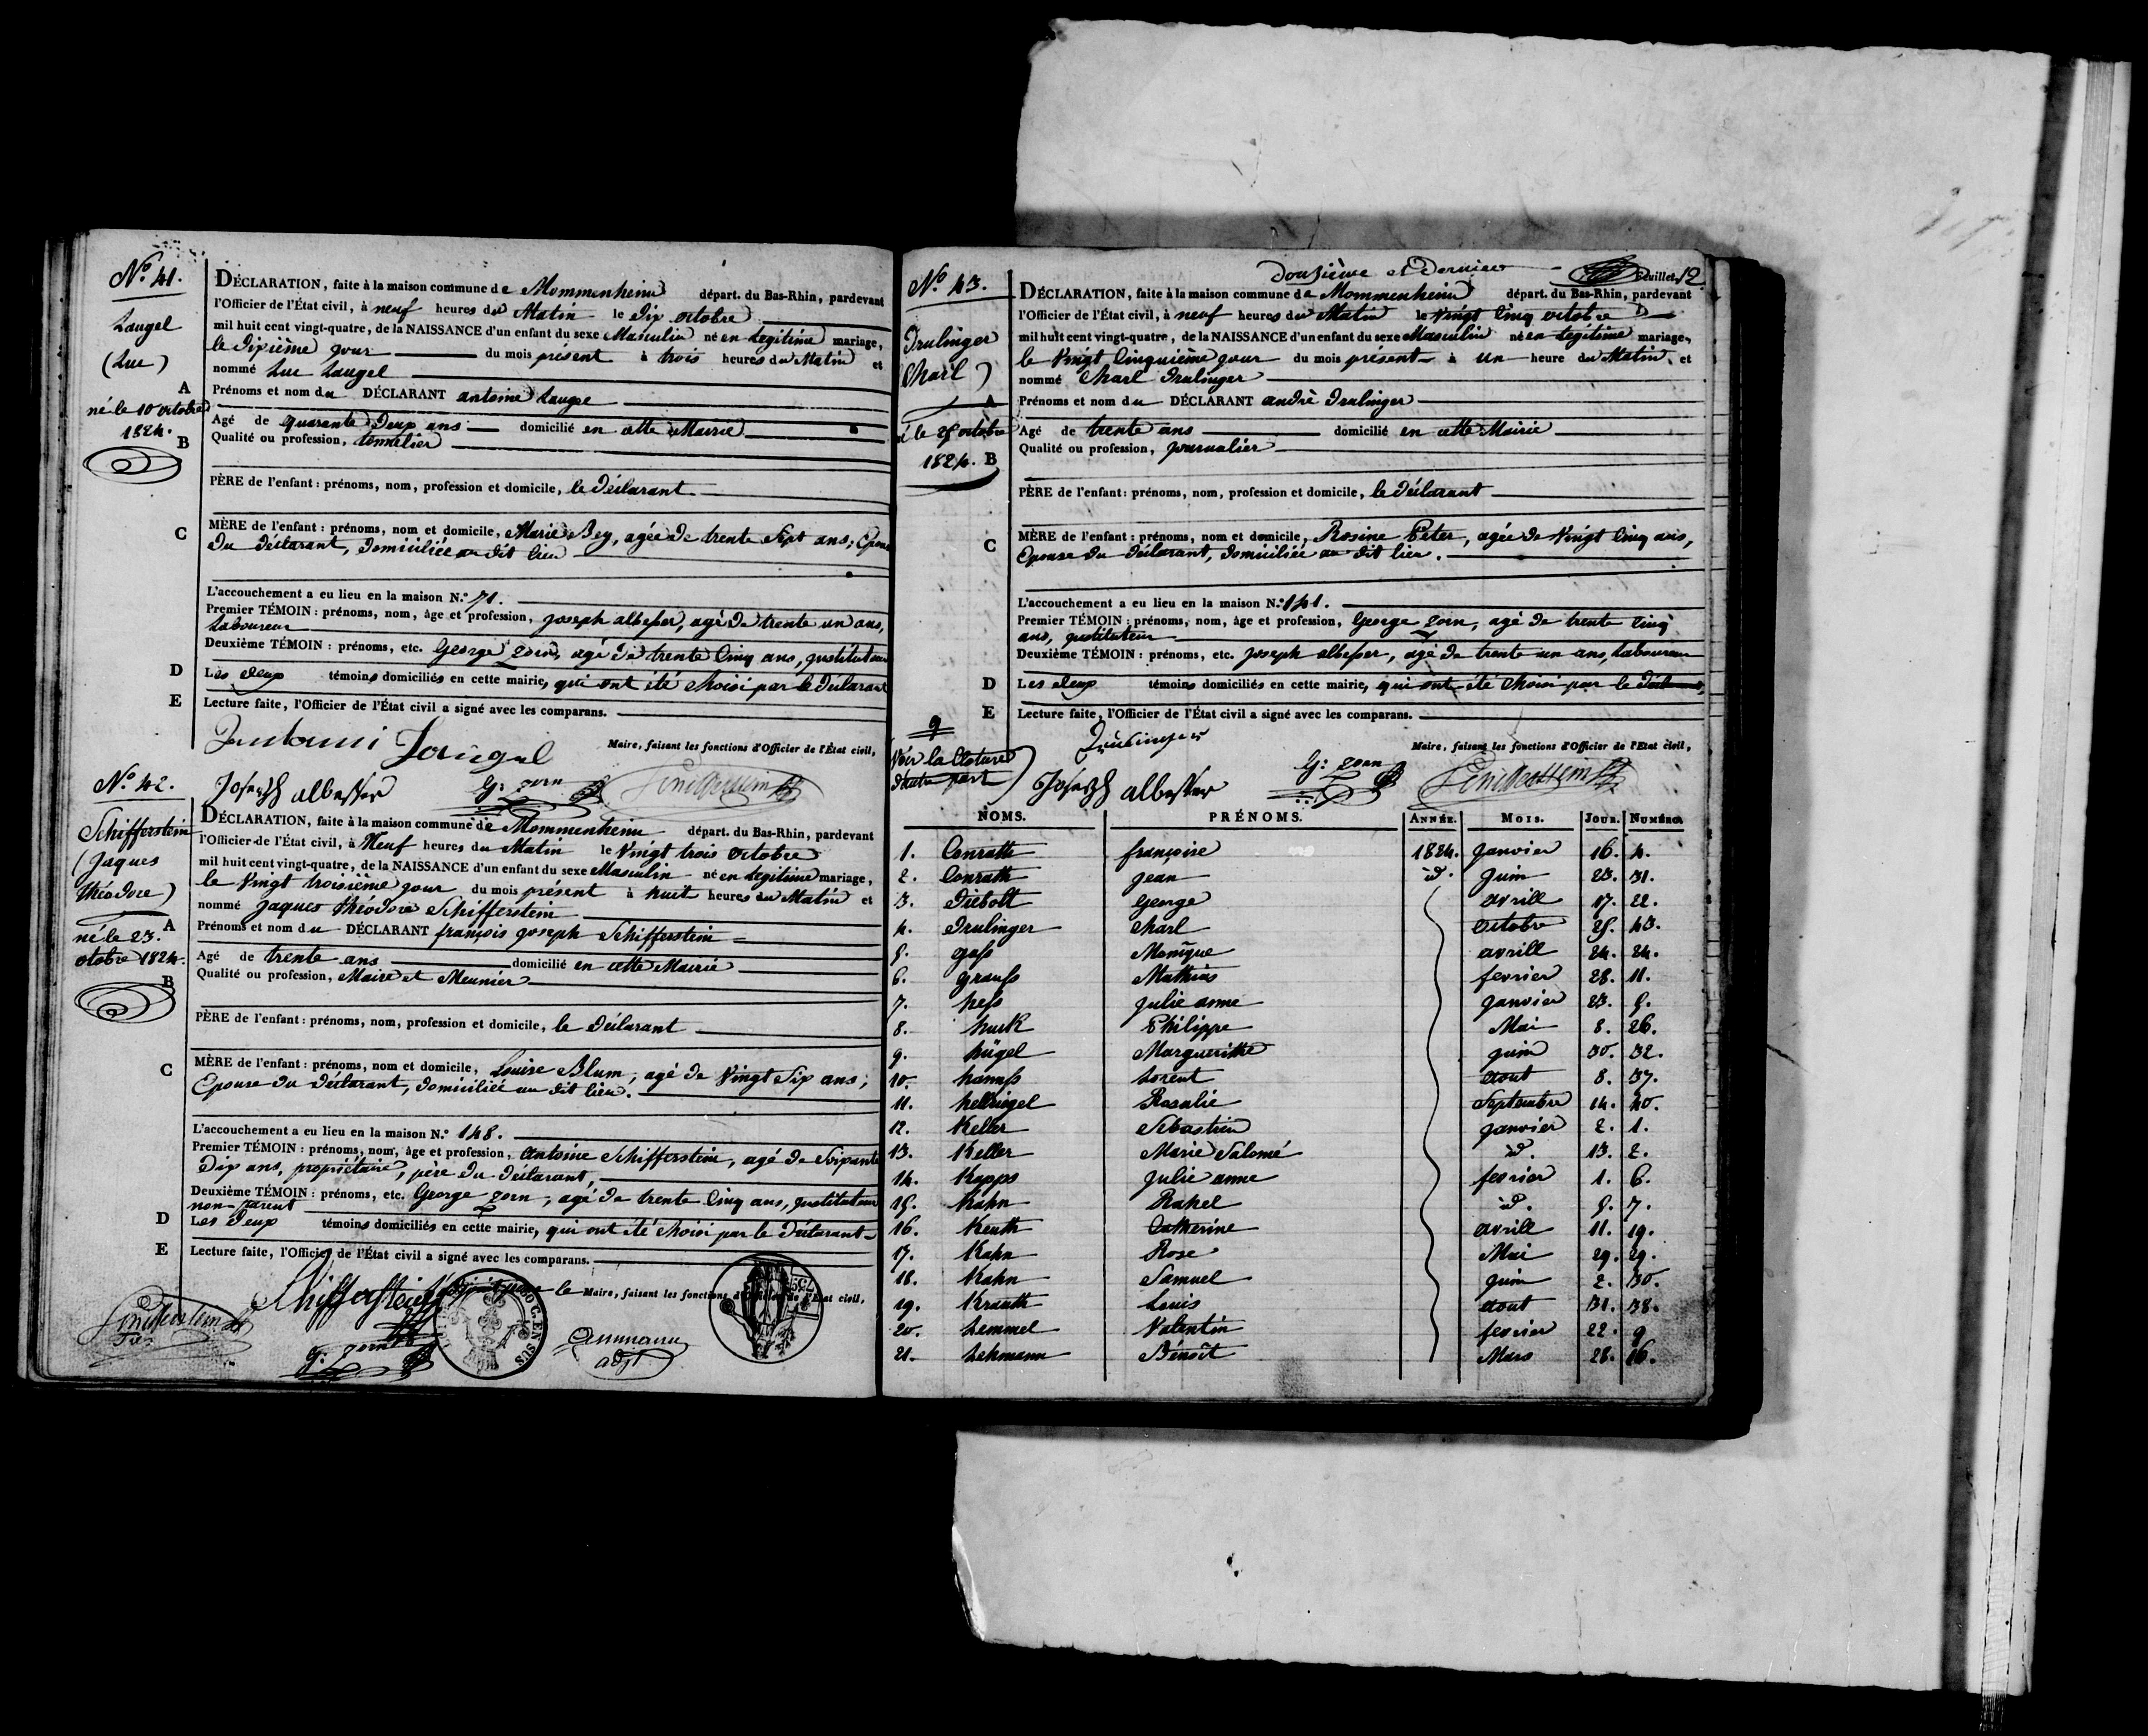 N.º 41.
Laugel
(Luc)
A
né le 10 octobre
1824.
B
DÉCLARATION, faite à la maison commune de Mommenheim départ. du Bas-Rhin, pardevant
l'Officier de l'État civil, à neuf heures du Matin le Dix octobre
mil huit cent vingt-quatre, de la NAISSANCE d'un enfant du sexe Masculin né en Legitime mariage,
le Dixième jour du mois présent à trois heures du Matin et
nommé Luc Laugel
Prénoms et nom du DÉCLARANT antoine Laugel
Agé de quarante Deux ans domicilié en cette Mairie
Qualité ou profession, tonnelier
PÈRE de l'enfant : prénoms, nom, profession et domicile, le Déclarant
C
MÈRE de l'enfant : prénoms, nom et domicile, Marie Bey, agée de trente Sept ans, Epouse
du déclarant, domiciliée au dit lieu
L'accouchement a eu lieu en la maison N.º 71.
Premier TÉMOIN : prénoms, nom, âge et profession, joseph albesser, agé de trente un ans,
Laboureur
Deuxième TÉMOIN : prénoms, etc. George zorn, agé de trente Cinq ans, jnstituteur
D
Les deux témoins domiciliés en cette mairie, qui ont été choisi par le Déclarant
E
Lecture faite, l'Officier de l'État civil a signé avec les comparans.
Maire, faisant les fonctions d'Officier de l'État civil,
Laugel
Joseph albesser G: zorn
N.º 42.
Schifferstein
(Jaques
théodore)
A
né le 23.
otobre 1824.
B
DÉCLARATION, faite à la maison commune de Mommenheim départ. du Bas-Rhin, pardevant
l'Officier de l'État civil, à Neuf heures du Matin le Vingt trois Octobre
mil huit cent vingt-quatre, de la NAISSANCE d'un enfant du sexe Masculin né en Legitime mariage,
le Vingt troisième jour du mois présent à huit heures du Matin et
nommé Jaques théodore Schifferstein
Prénoms et nom du DÉCLARANT françois joseph Schifferstein
Agé de trente ans domicilié en cette Mairie
Qualité ou profession, Maire et Meunier
PÈRE de l'enfant : prénoms, nom, profession et domicile, le Déclarant
C
MÈRE de l'enfant : prénoms, nom et domicile, Louise Blum, agé de Vingt Six ans;
Epouse du déclarant, domiciliée au dit lieu.
L'accouchement a eu lieu en la maison N.º 148.
Premier TÉMOIN : prénoms, nom, âge et profession, Antoine Schifferstein, agé de Soixante
Dix ans, propriétaire, père du déclarant,
Deuxième TÉMOIN : prénoms, etc. George zorn, agé de trente Cinq ans, jnstituteur
non-parent
D
Les Deux témoins domiciliés en cette mairie, qui ont été choisi par le Déclarant
E
Lecture faite, l'Officier de l'État civil a signé avec les comparans.
Schifferstein le Maire, faisant les fonctions d'Officier de l'État civil,
G: zorn
adjt
C. EN SUS
Douzième et Dernier Feuillet 12
N.º 43.
Irulinger
Charl)
A
né le 25 octobre
1824.
B
DÉCLARATION, faite à la maison commune de Mommenheim départ. du Bas-Rhin, pardevant
l'Officier de l'État civil, à neuf heures du Matin le Vingt Cinq octobre
mil huit cent vingt-quatre, de la NAISSANCE d'un enfant du sexe Masculin né en Legitime mariage,
le Vingt Cinquième jour du mois présent à un heure du Matin et
nommé Charl Irulinger
Prénoms et nom du DÉCLARANT andré Irulinger
Agé de trente ans domicilié en cette Mairie
Qualité ou profession, journalier
PÈRE de l'enfant : prénoms, nom, profession et domicile, le Déclarant
C
MÈRE de l'enfant : prénoms, nom et domicile, Rosine Peter, agée de Vingt Cinq ans,
Epouse du déclarant, domiciliée au dit lieu.
L'accouchement a eu lieu en la maison N.º 141.
Premier TÉMOIN : prénoms, nom, âge et profession, George zorn, agé de trente Cinq
ans, jnstituteur
Deuxième TÉMOIN : prénoms, etc. joseph albesser, agé de trente un ans, Laboureur
D
Les deux témoins domiciliés en cette mairie, qui ont été choisi par le Déclarant,
E
Lecture faite, l'Officier de l'État civil a signé avec les comparans.
Maire, faisant les fonctions d'Officier de l'État civil,
9
Voir la Cloture
d'autre part
Joseph albesser G: zorn
NOMS. PRÉNOMS. ANNÉE. MOIS. JOUR. NUMÉRO.
1. Conrath françoise 1824. janvier 16. 4.
2. Conrath jean id. juin 23. 31.
3. Diebolt George avrill 17. 22.
4. Irulinger charl octobre 25. 43.
5. gass Monique avrill 24. 24.
6. grauss Mathias fevrier 28. 11.
7. hess julie anne janvier 23. 5.
8. hurk Philippe Mai 8. 26.
9. hügel Margueritte juin 30. 32.
10. hamss Lorent aout 8. 37.
11. hellriegel Rosalie Septembre 14. 40.
12. Keller Sébastien janvier 2. 1.
13. Keller Marie Salomé id. 13. 2.
14. Kapps julie anne fevrier 1. 6.
15. Kahn Rahel id. 5. 7.
16. Keuth Catherine avrill 11. 19.
17. Kahn Rose Mai 29. 29.
18. Kahn Samuel juin 2. 30.
19. Krauth Louis aout 31. 38.
20. Lemmel Valentin fevrier 22. 9
21. Lehmann Bénoit Mars 28. 16.